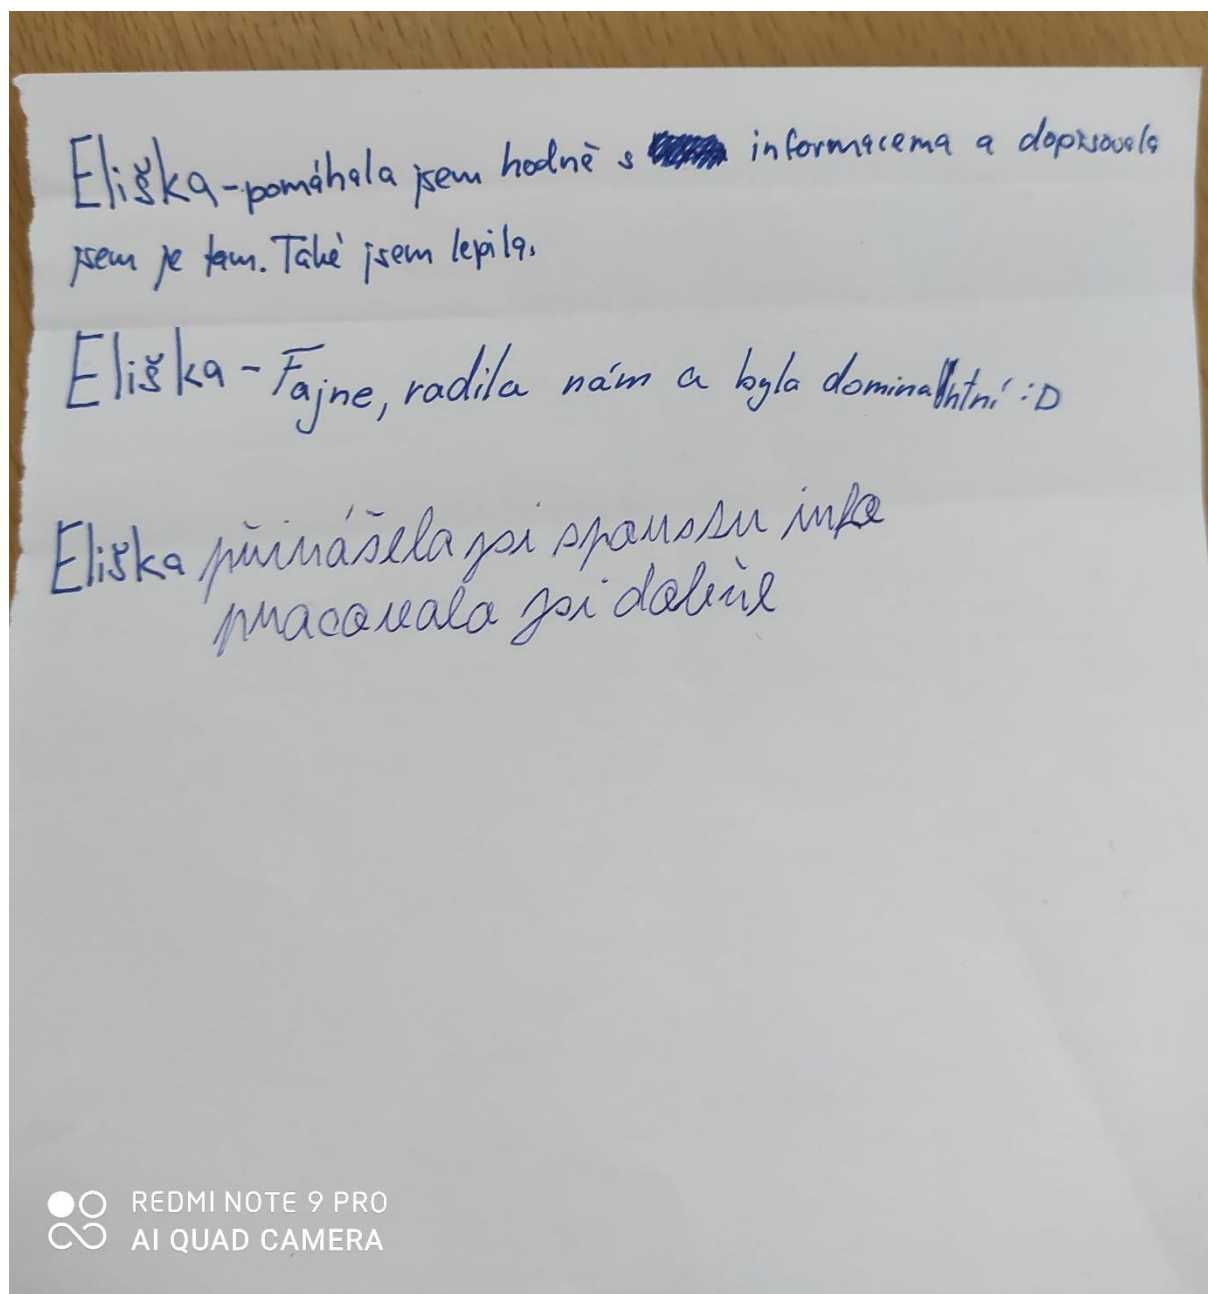 Eliška - pomáhala jsem hodně s informacema a dopisovala
jsem je tam. Také jsem lepila.
Eliška - Fajne, radila nám a byla dominantní :D
Eliška přinášela jsi spoustu info
pracovala jsi dobře
REDMI NOTE 9 PRO
AI QUAD CAMERA